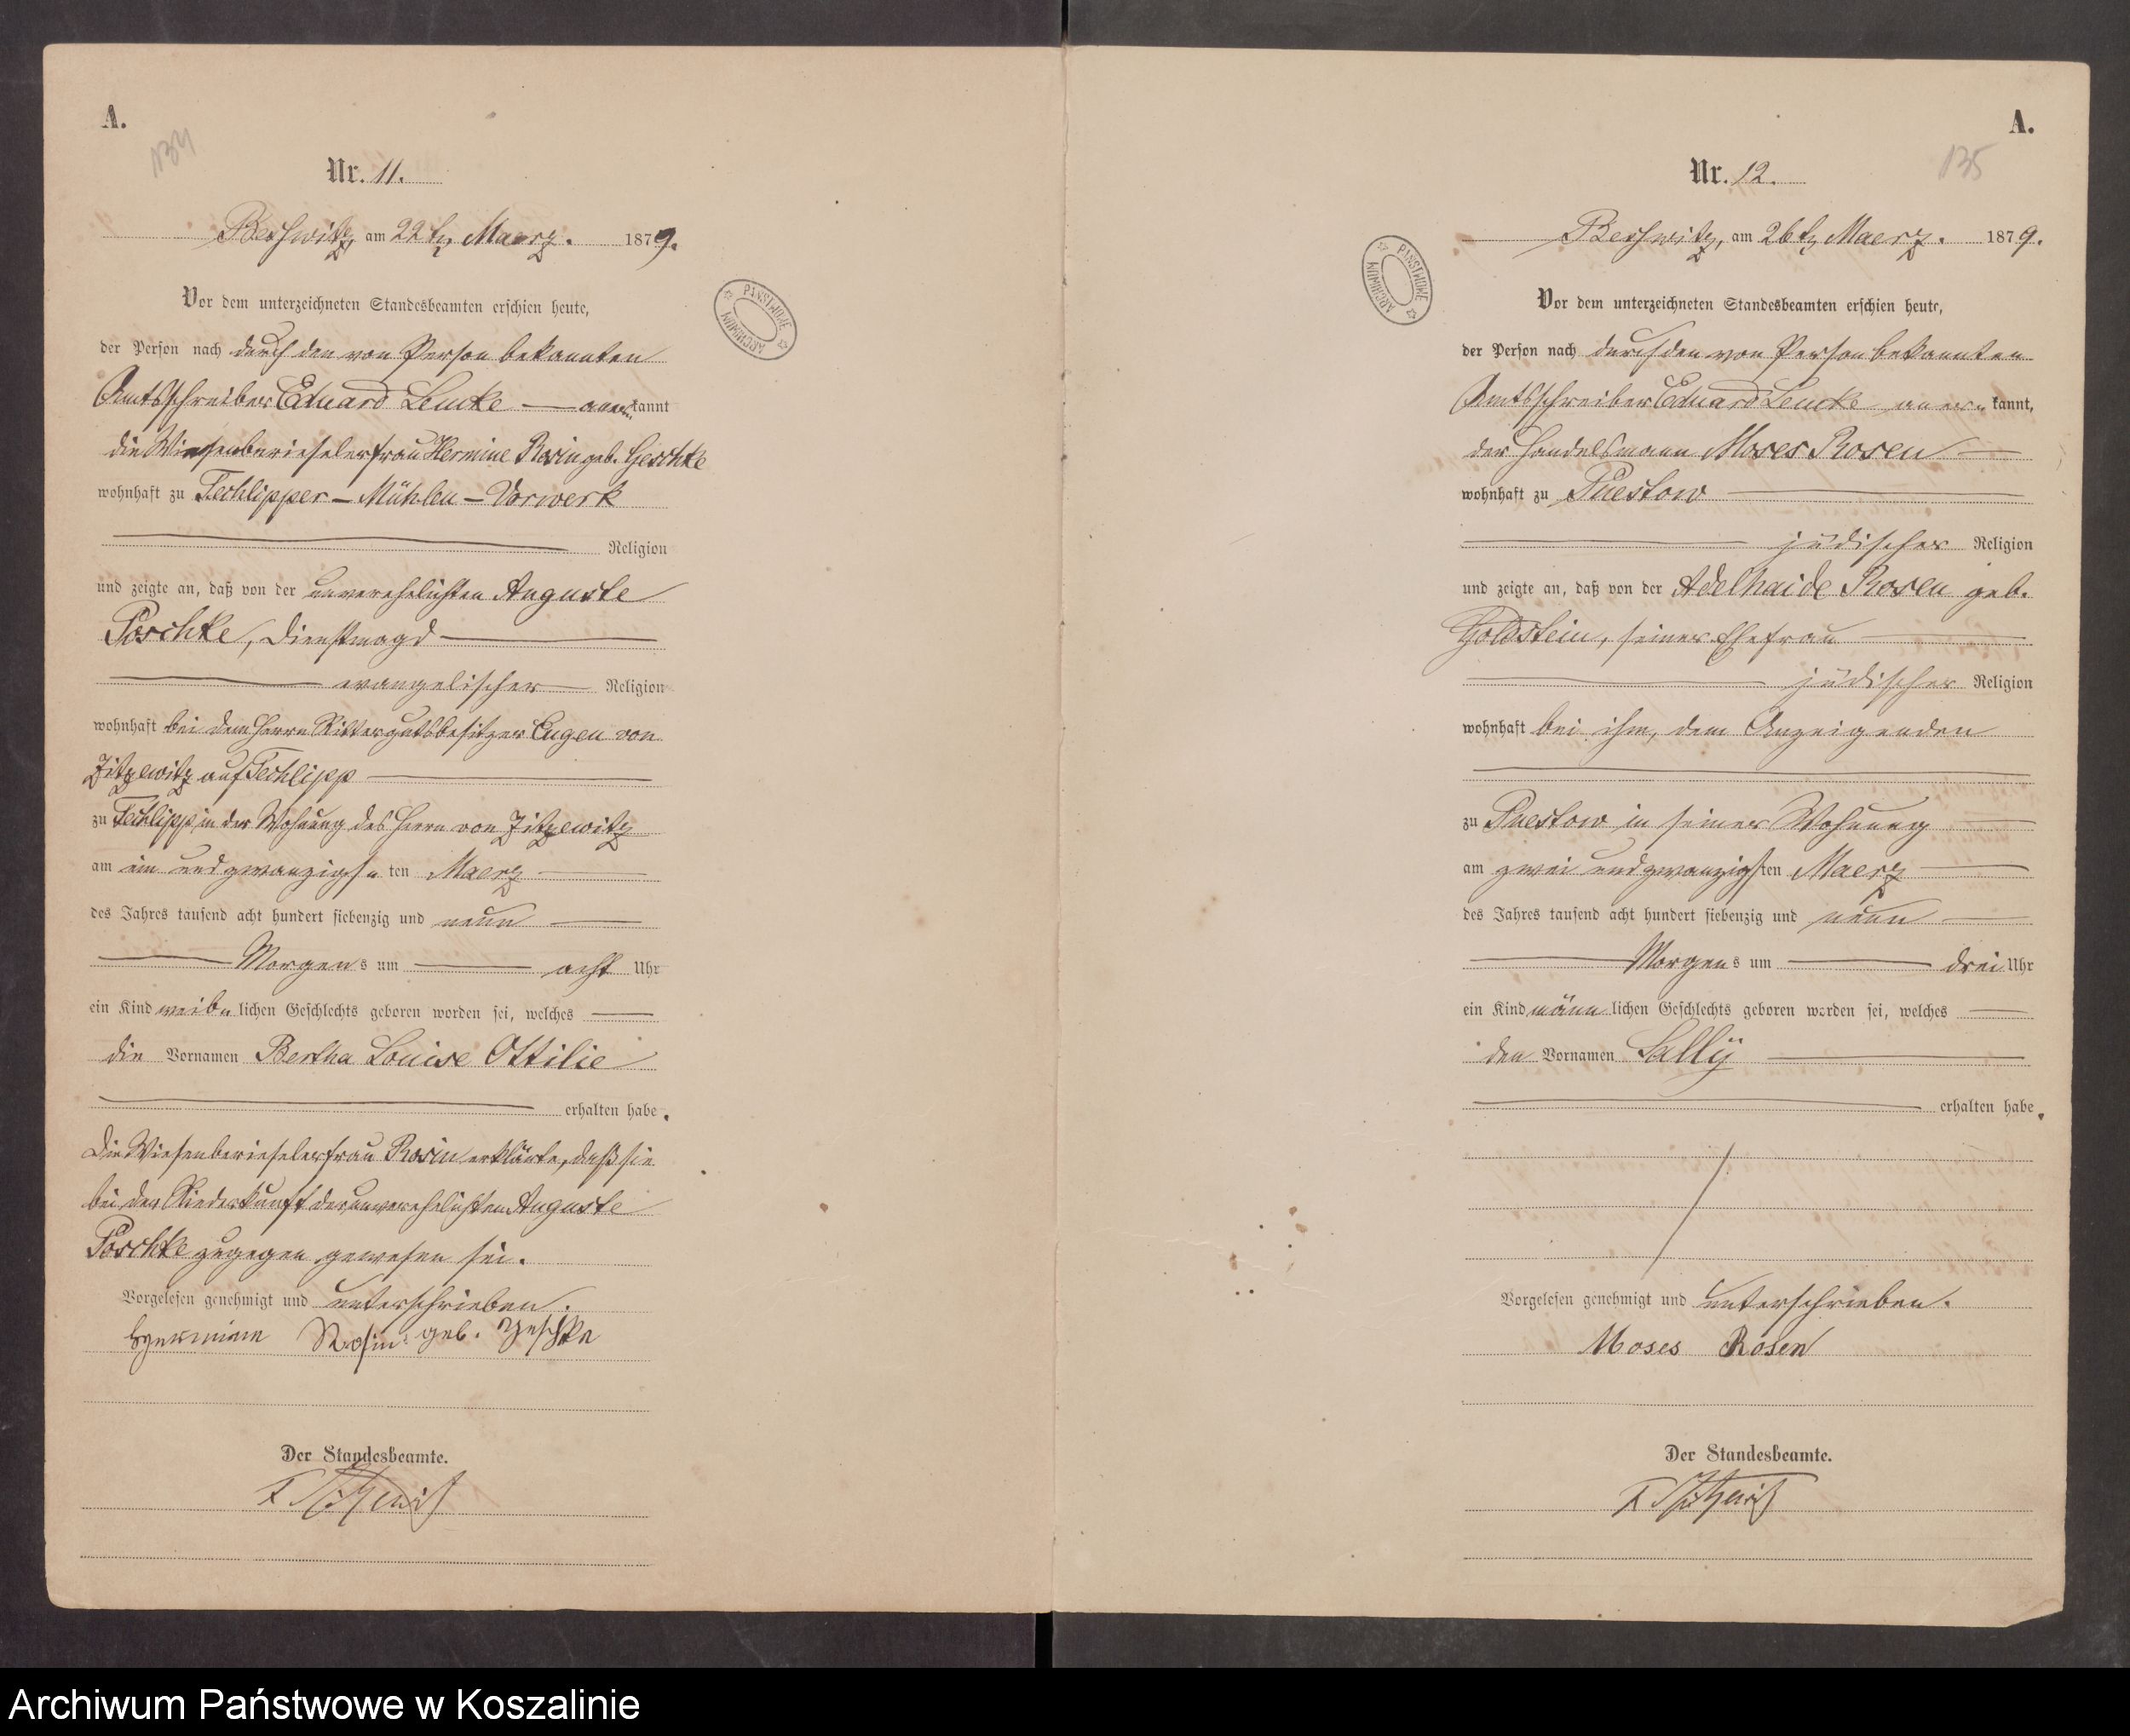 A.
134
Nr. 11.
Beßwitz, am 22ten Maerz. 1879.
Vor dem unterzeichneten Standesbeamten erschien heute,
der Person nach durch den von Person bekannten
Amtsschreiber Eduard Lemke — aner kannt
die Wiesenberieselerfrau Hermine Rosin geb. Geschke
wohnhaft zu Techlipper-Mühlen-Vorwerk
Religion
und zeigte an, daß von der unverehelichten Auguste
Poschke, Dienstmagd
evangelischer Religion
wohnhaft bei dem Herrn Rittergutsbesitzer Eugen von
Zitzewitz auf Techlipp
zu Techlipp in der Wohnung des Herrn von Zitzewitz
am ein und zwanzigs ten Maerz
des Jahres tausend acht hundert siebenzig und neun
Morgens um acht Uhr
ein Kind weib lichen Geschlechts geboren worden sei, welches
die Vornamen Bertha Louise Ottilie
erhalten habe.
Die Wiesenberieselerfrau Rosin erklärte, daß sie
bei der Niederkunft der unverehelichten Auguste
Poschke zugegen gewesen sei.
Vorgelesen genehmigt und unterschrieben.
Hermine Rosin geb. Geschke
Der Standesbeamte.
ARCHIWUM PAŃSTWOWE
A.
135
Nr. 12.
Beßwitz, am 26ten Maerz. 1879.
Vor dem unterzeichneten Standesbeamten erschien heute,
der Person nach durch den von Person bekannten
Amtsschreiber Eduard Lemke aner kannt,
der Handelsmann Moses Rosen
wohnhaft zu Puestow
jüdischer Religion
und zeigte an, daß von der Adelhaide Rosen geb.
Goldstein, seiner Ehefrau
jüdischer Religion
wohnhaft bei ihm, dem Anzeigenden
zu Puestow in seiner Wohnung
am zwei und zwanzigsten Maerz
des Jahres tausend acht hundert siebenzig und neun
Morgens um drei Uhr
ein Kind männ lichen Geschlechts geboren worden sei, welches
den Vornamen Sally
erhalten habe.
Vorgelesen genehmigt und unterschrieben.
Moses Rosen
Der Standesbeamte.
ARCHIWUM PAŃSTWOWE
Archiwum Państwowe w Koszalinie